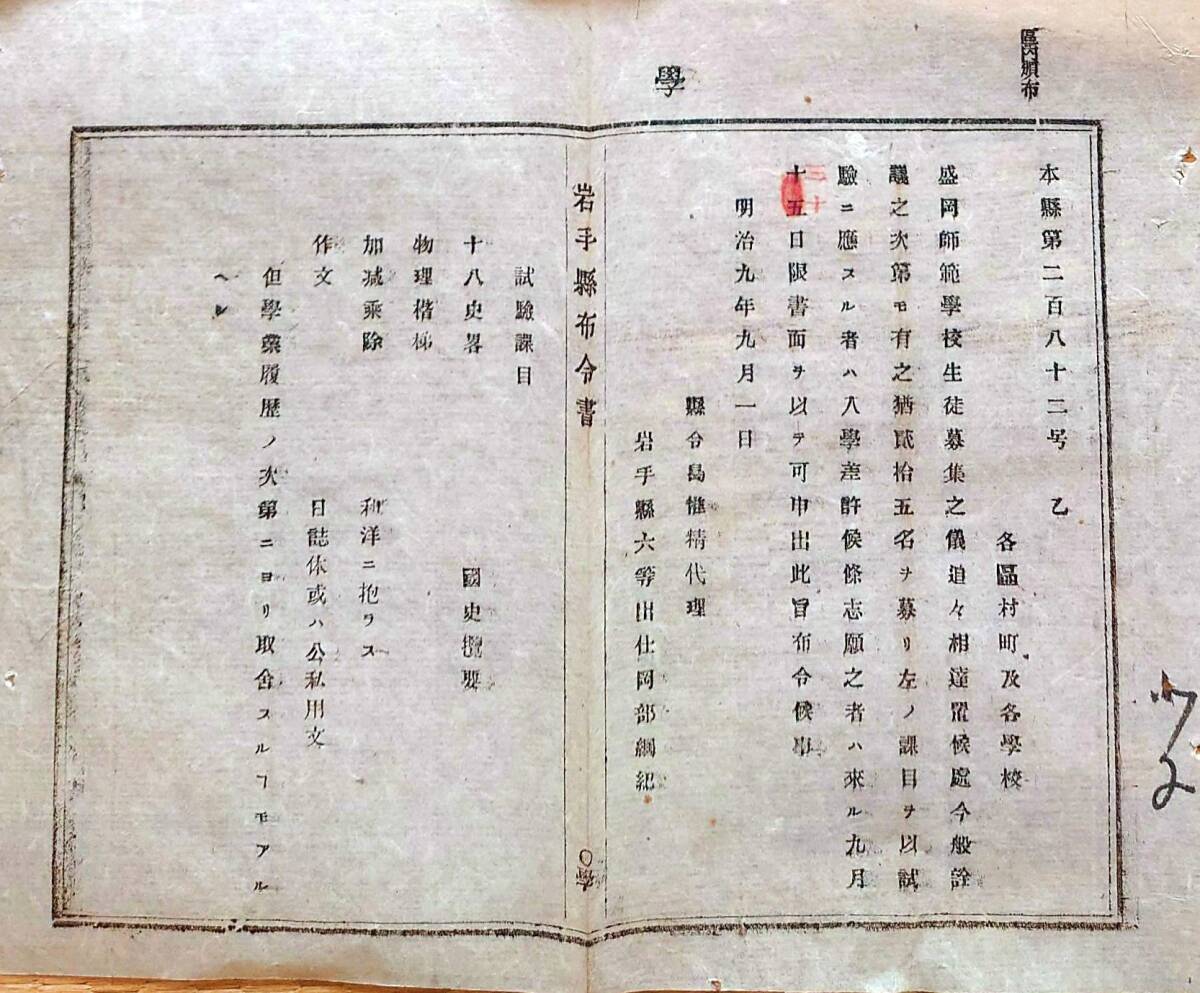 區內頒布
學
本縣第二百八十二号 乙
各區村町及各學校
盛岡師範學校生徒募集之儀追々相達置候處今般詮
議之次第モ有之猶貳拾五名ヲ募リ左ノ課目ヲ以試
驗ニ應スル者ハ入學差許候條志願之者ハ來ル九月
十五日限書面ヲ以テ可申出此旨布令候事
三十
明治九年九月一日
縣令島惟精代理
岩手縣六等出仕岡部綱紀
岩手縣布令書
試驗課目
十八史畧 國史攬要
物理楷梯
加减乘除 和洋ニ抱ラス
作文 日誌体或ハ公私用文
但學業履歴ノ次第ニヨリ取舍スルヿモアル
ヘシ